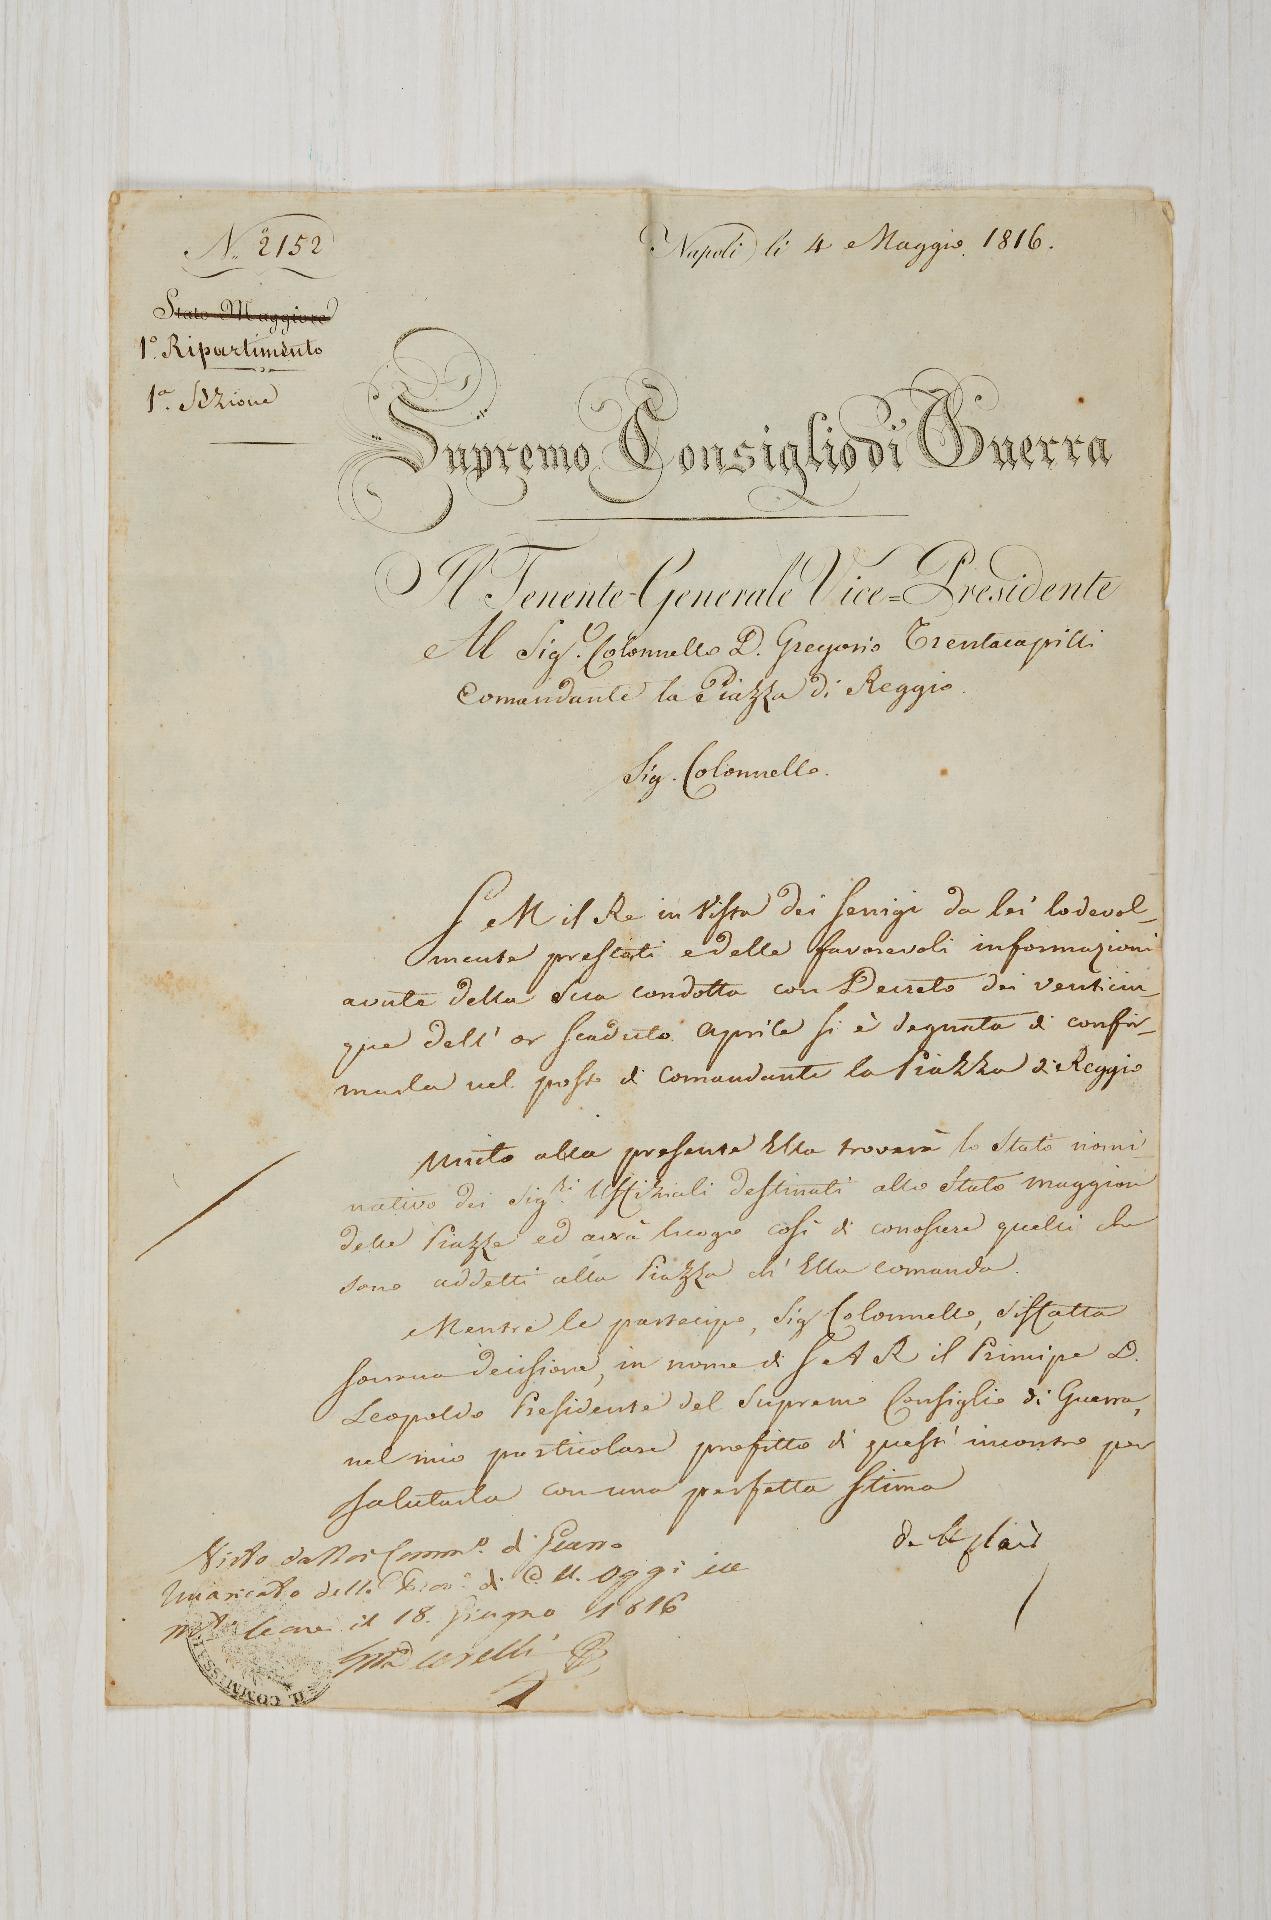 N.º 2152
Napoli li 4 Maggio 1816.
Stato Maggiore
1º. Ripartimento
1ª. Sezione
Supremo Consiglio di Guerra
Il Tenente Generale Vice=Presidente
Al Sigr. Colonnello D. Gregorio Trentacapilli
Comandante la Piazza di Reggio.
Sig. Colonnello.
S M il Re in vista dei servigi da lei lodevol-
mente prestati e delle favorevoli informazioni
avute della Sua condotta con Decreto dei venticin-
que dell' or scaduto Aprile si è degnata di confir-
marla nel posto di Comandante la Piazza di Reggio
Unito alla presente Ella troverà lo Stato nomi-
nativo dei Sigri Uffiziali destinati allo Stato maggiore
delle Piazze ed avrà luogo così di conoscere quelli che
sono addetti alla Piazza ch' Ella comanda.
Mentre le partecipo, Sig Colonnello, siffatta
sovrana decisione, in nome di S A R il Principe D.
Leopoldo Presidente del Supremo Consiglio di Guerra,
nel mio particolare profitto di questi incontro per
salutarla con una perfetta stima
Visto da Noi Comm. di Guerra
incaricato della di C. U. Oggi in
Leone il 18. Giugno 1816
IL COMMISSA